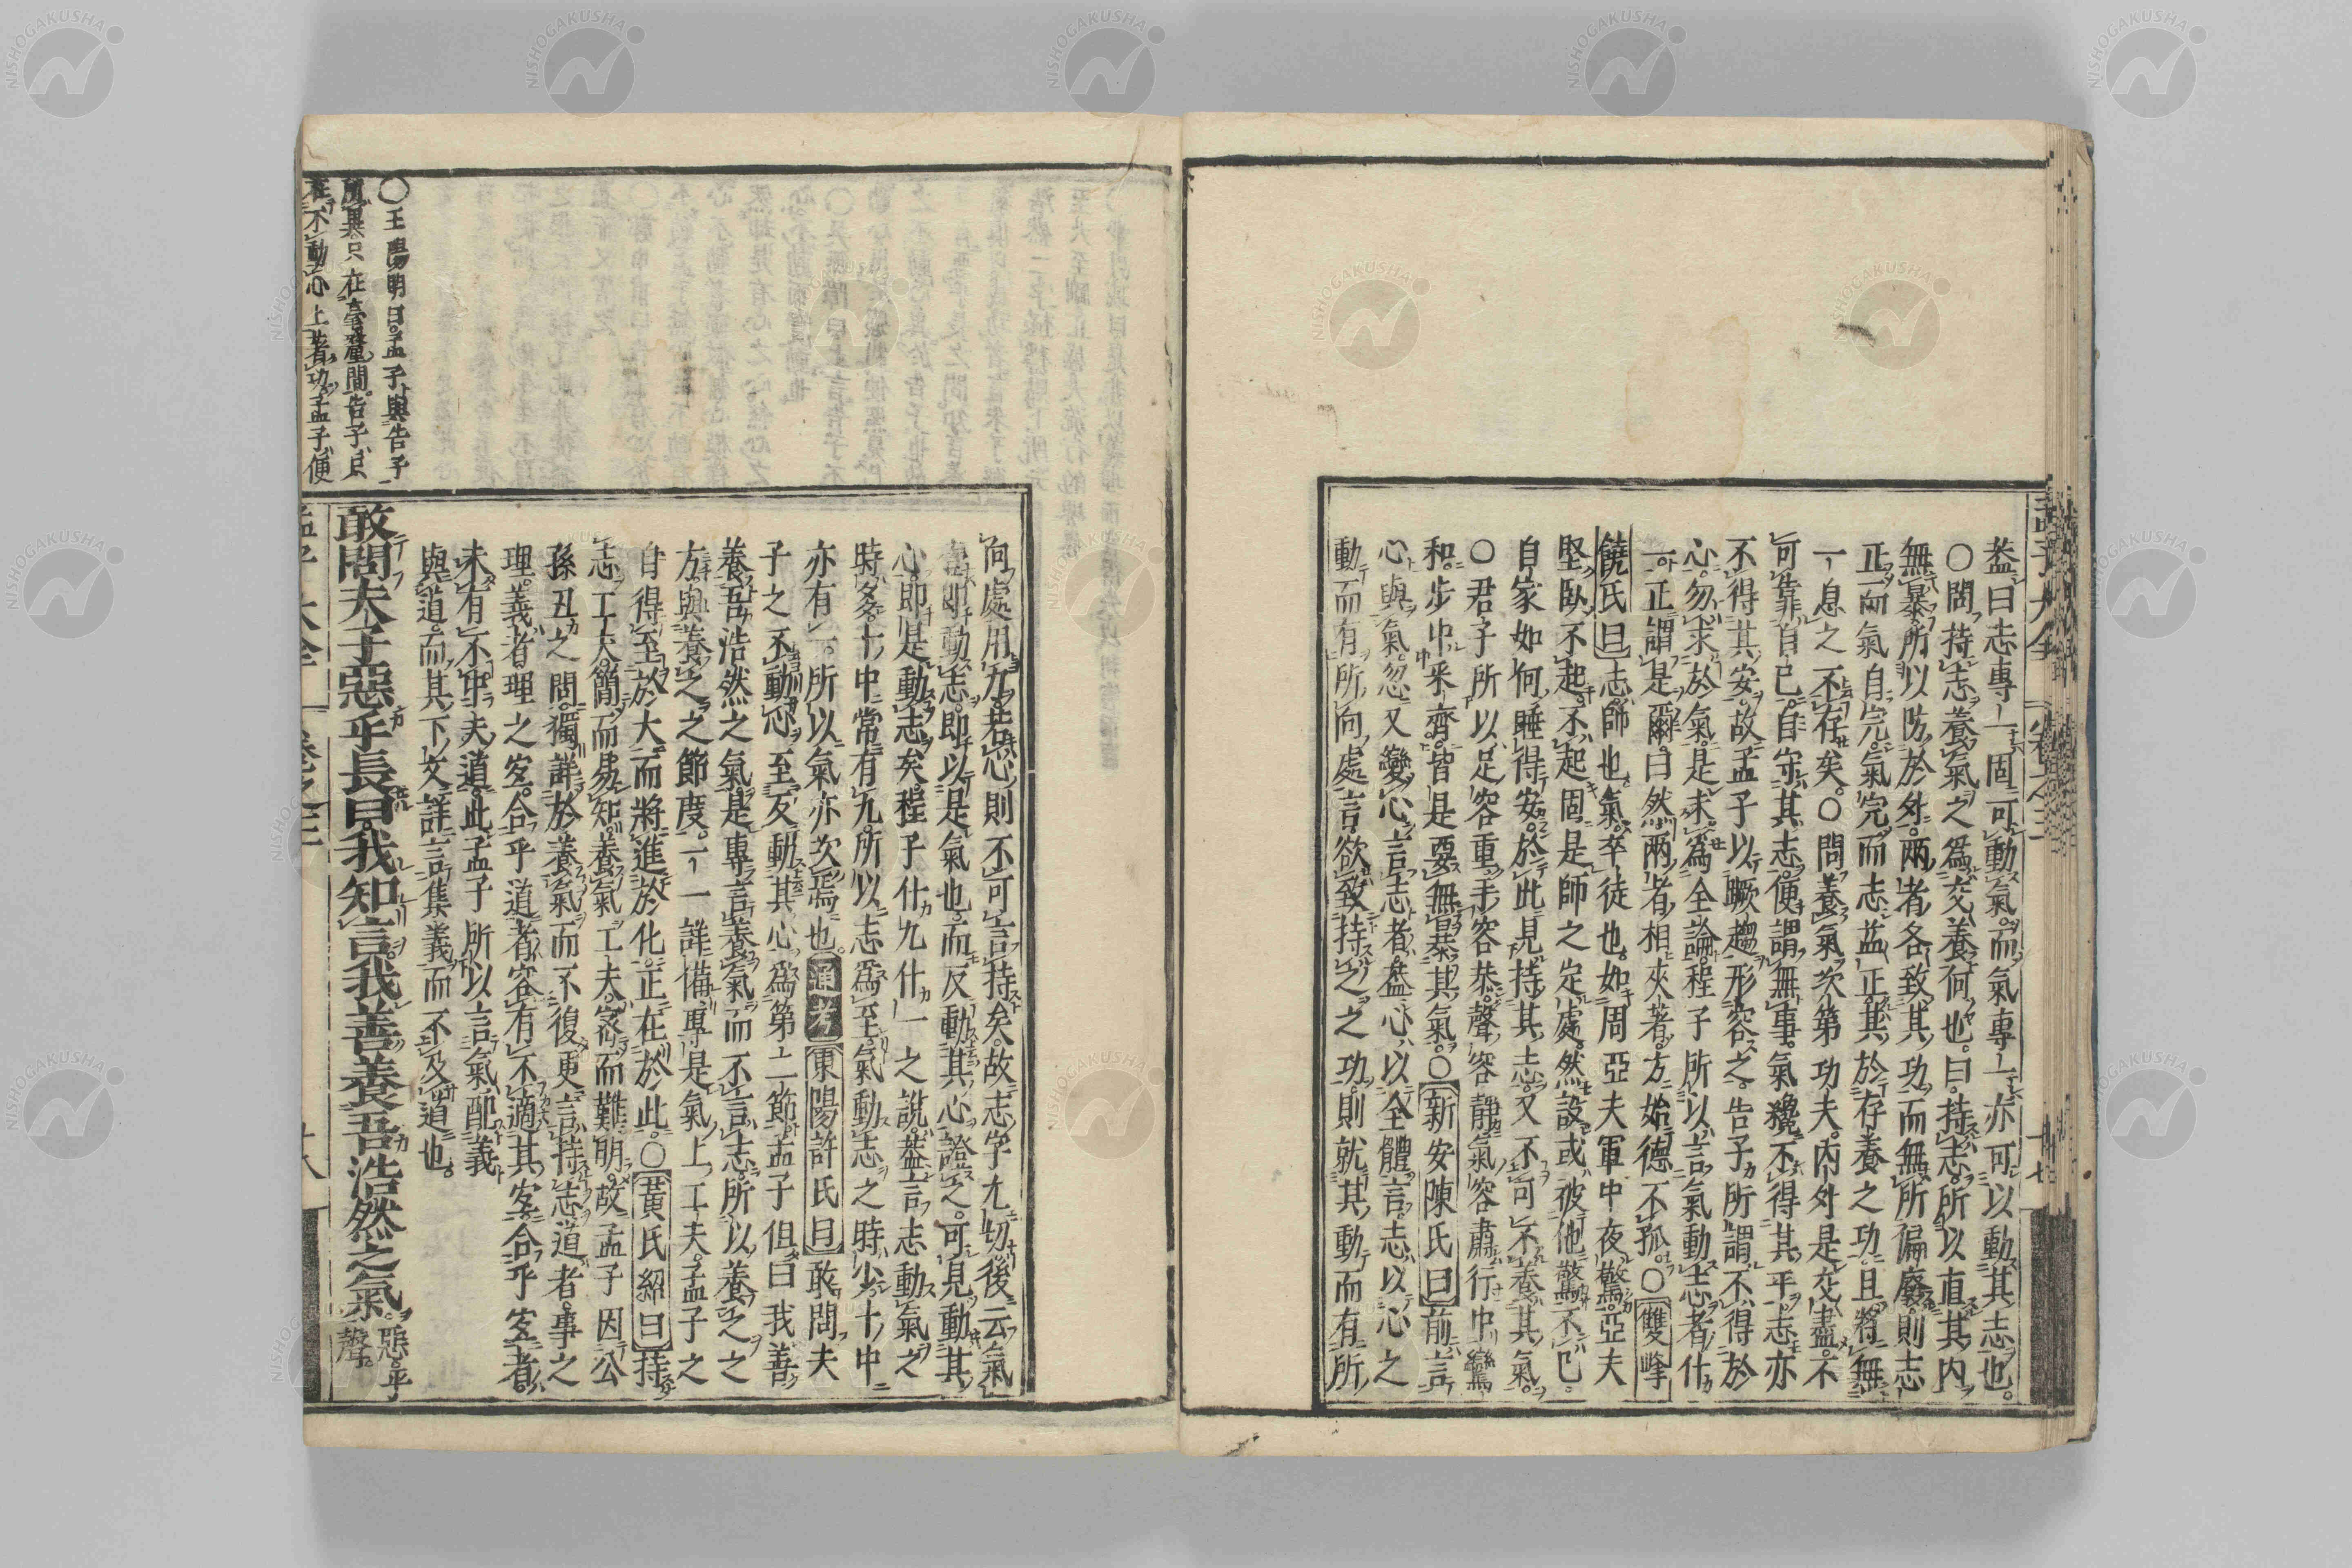 孟子大全 卷之三 十七
蓋曰志專一固可動氣而氣專一亦可以動其志也
○問持志養氣之爲交養何也曰持志所以直其内
無暴所以防於外兩者各致其功而無所偏廢則志
正而氣自完氣完而志益正其於存養之功且將無
一息之不存矣○問養氣次第功夫内外是交盡不
可靠自己自守其志便謂無事氣纔不得其平志亦
不得其安故孟子以蹶趨形容之告子所謂不得於
心勿求於氣是求爲全論程子所以言氣動志者什
一正謂是爾曰然兩者相夾著方始德不孤○雙峰
饒氏曰志師也氣卒徒也如周亞夫軍中夜驚亞夫
堅臥不起不起固是師之定處然設或彼他驚不已
自家如何睡得安於此見持其志又不可不養其氣
○君子所以足容重手容恭聲容靜氣容肅行中鸞
和步中采齊皆是要無暴其氣○新安陳氏曰前言
心與氣忽又變心言志者蓋心以全體言志以心之
動而有所向處言欲致持之之功則就其動而有所
向處用力若心則不可言持矣故志字尤切後云氣
壹則動志即以是氣也而反動其心證之可見動其
心即是動志矣程子什九什一之說蓋言志動氣之
時多十中常有九所以志爲至氣動志之時少十中
亦有一所以氣亦次焉也通考東陽許氏曰敢問夫
子之不動心至反動其心爲第二節孟子但曰我善
養吾浩然之氣是專言養氣而不言志所以養之之
方與養之之節度一一詳備專是氣上工夫孟子之
自得至於大而將進於化正在於此○黃氏紹曰持
志工夫簡而易知養氣工夫密而難明故孟子因公
孫丑之問獨詳於養氣而不復更言持志道者事之
理義者理之宜合乎道者容有不適其宜合乎宜者
未有不中夫道此孟子所以言氣配義
與道而其下文詳言集義而不及道也
敢問夫子惡乎長曰我知言我善養吾浩然之氣惡平聲
○王陽明曰孟子與告子
所異只在毫釐間告子只
在不動心上著功孟子便